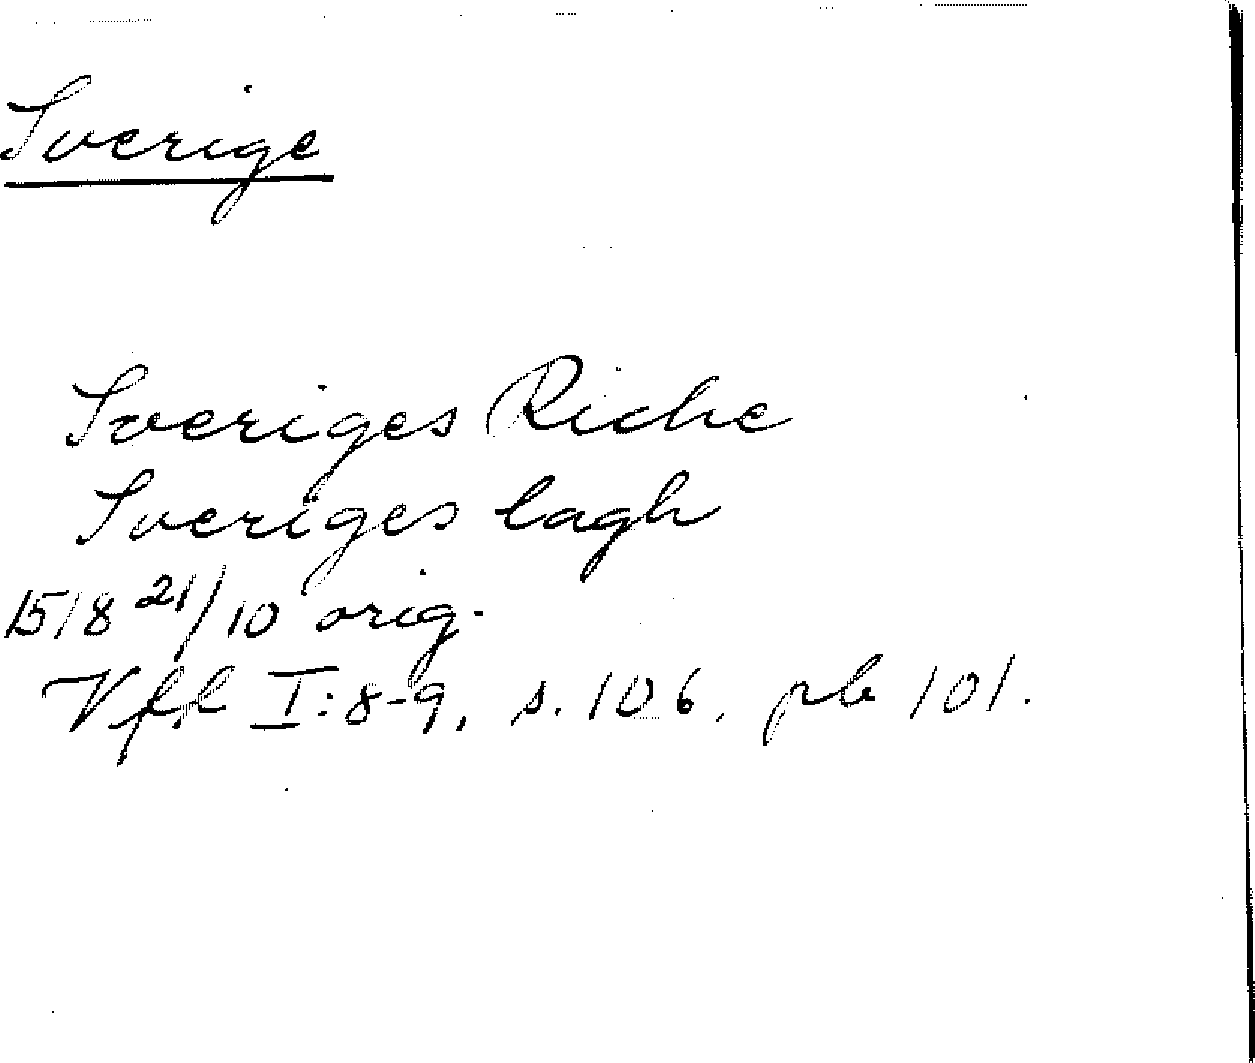 Sverige
Sveriges Riche
Sveriges lagh
1518 21/10 orig.
Vffl I:8-9, s. 106, pb 101.